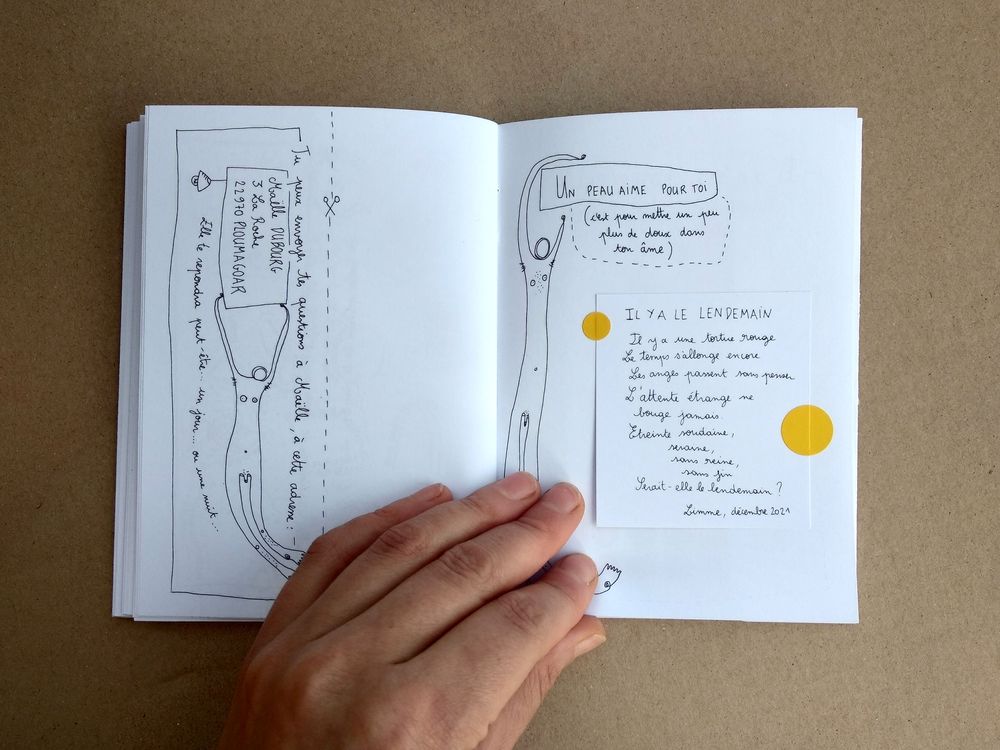 Tu peux envoyer tes questions à Maëlle, à cette adresse :
Maëlle DUBOURG
3 La Roche
22970 PLOUMAGOAR
Elle te repondra peut-être... un jour... ou une nuit...
UN PEAU AIME POUR TOI
(c'est pour mettre un peu
plus de doux dans
ton âme)
IL Y A LE LENDEMAIN
Il y a une tortue rouge
Le temps s'allonge encore
Les anges passent sans penser
L'attente étrange ne
bouge jamais.
Etreinte soudaine,
sereine,
sans reine,
sans fin
Serait-elle le lendemain ?
Limme, décembre 2021